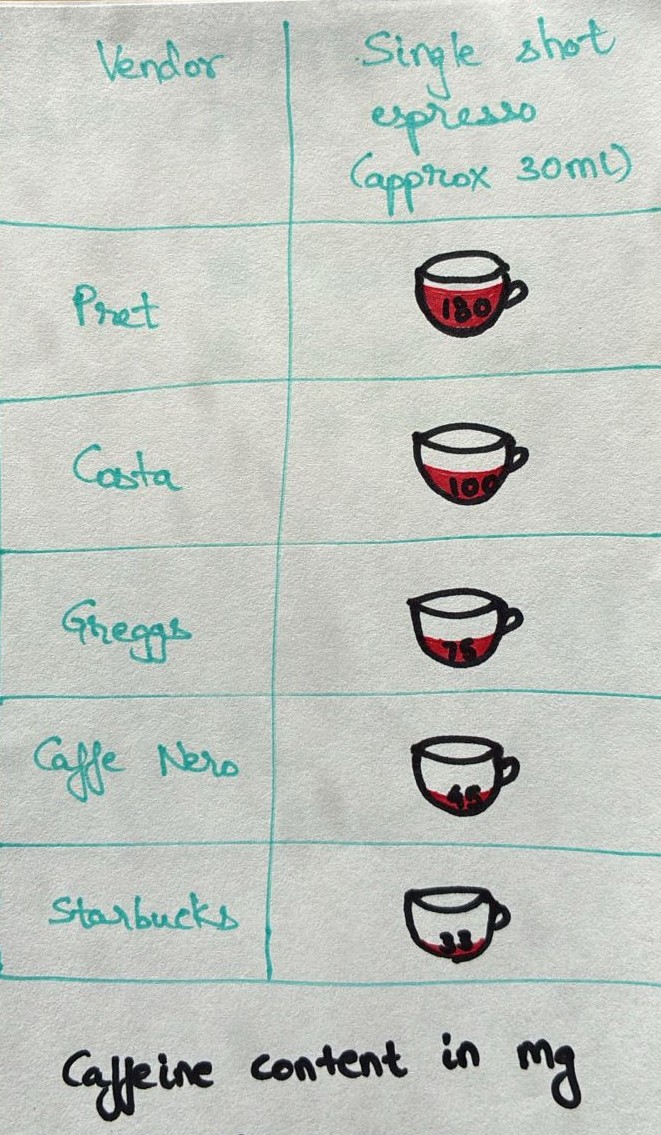 Vendor
Single shot
espresso
(approx 30ml)
Pret
180
Costa
100
Greggs
75
Caffe Nero
45
Starbucks
33
Caffeine content in mg